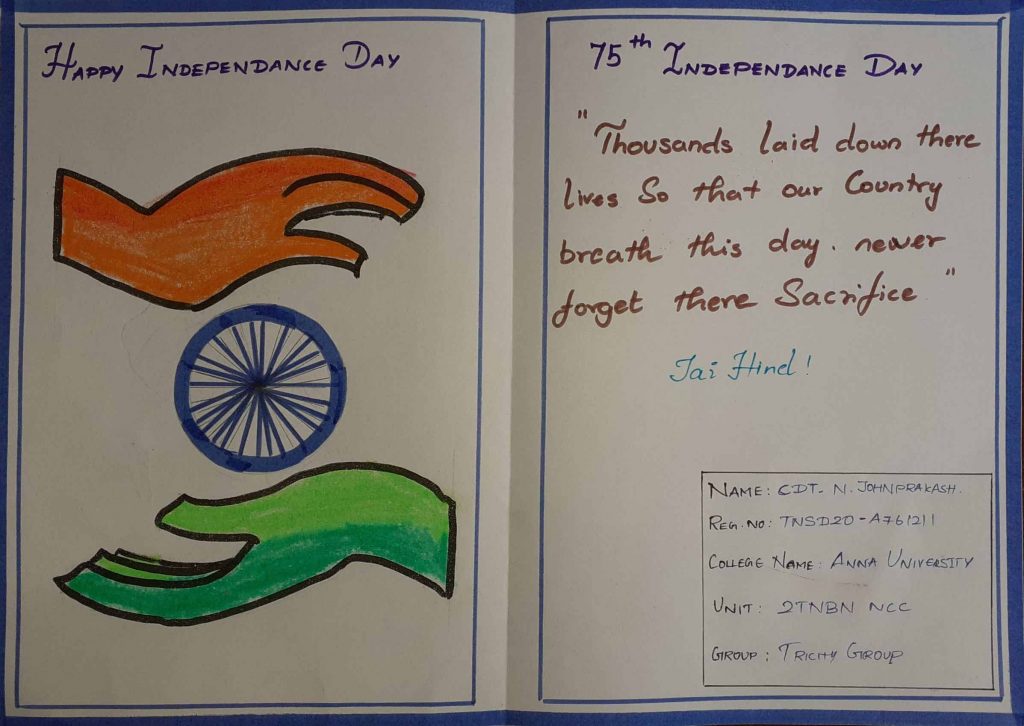 Happy Independance Day
75th Independance Day
"Thousands laid down there
lives So that our Country
breath this day. never
forget there Sacrifice"
Jai Hind!
Name: CDT. N. JOHNPRAKASH.
Reg. No: TNSD20-A761211
College Name: Anna University
Unit: 2TNBN NCC
Group: Trichy Group